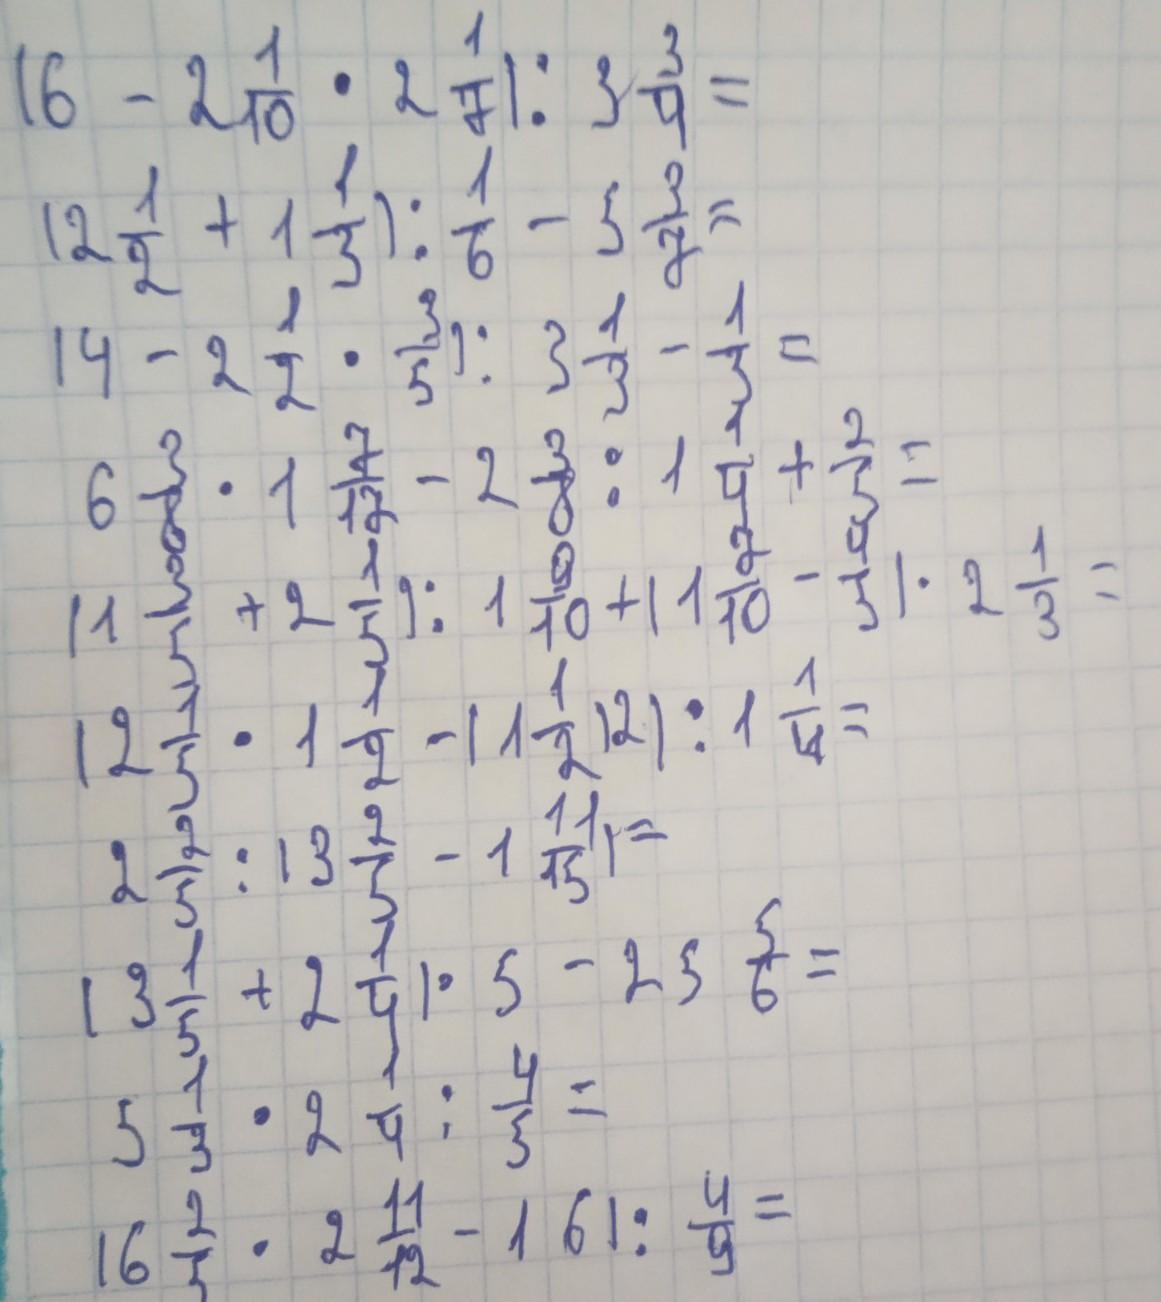 (6 - 2 1/10 · 2 1/7) : 3 3/4 =
(2 1/2 + 1 1/3) : 1/6 - 5 3/7 =
(4 - 2 1/2 · 3/5) : 3 1/3 - 1/3 =
6 3/8 · 1 7/17 - 2 3/8 : 1 1/4 + 2/5 =
+ 2 1/5) : 1 9/10 + (1 7/10 - 4/5) · 2 1/3 =
(2 1/5 · 1 1/2 - (1 1/2)2) : 1 1/4 =
2 2/5 : (3 2/5 - 1 11/15) =
(3 1/5 + 2 1/4) · 5 - 25 5/6 =
5 1/3 · 2 1/4 : 4/5 =
(6 2/5 · 2 11/12 - 16) : 4/9 =